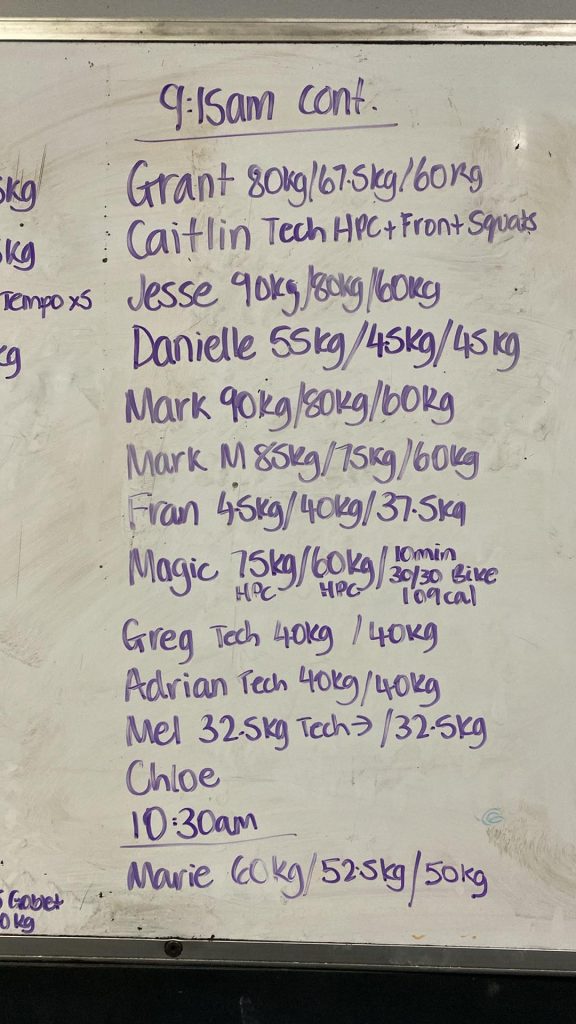 9:15am cont.
Grant 80kg/67.5kg/60kg
Caitlin Tech HPC+Front Squats
Jesse 90kg/80kg/60kg
Danielle 55kg/45kg/45kg
Mark 90kg/80kg/60kg
Mark M 85kg/75kg/60kg
Fran 45kg/40kg/37.5kg
Magic 75kg/60kg/10min
30/30 Bike
HPC HPC 109cal
Greg Tech 40kg /40kg
Adrian Tech 40kg/40kg
Mel 32.5kg Tech→/32.5kg
Chloe
10:30am
Marie 60kg/52.5kg/50kg
5kg
kg
Tempo x5
kg
Gobet
0kg